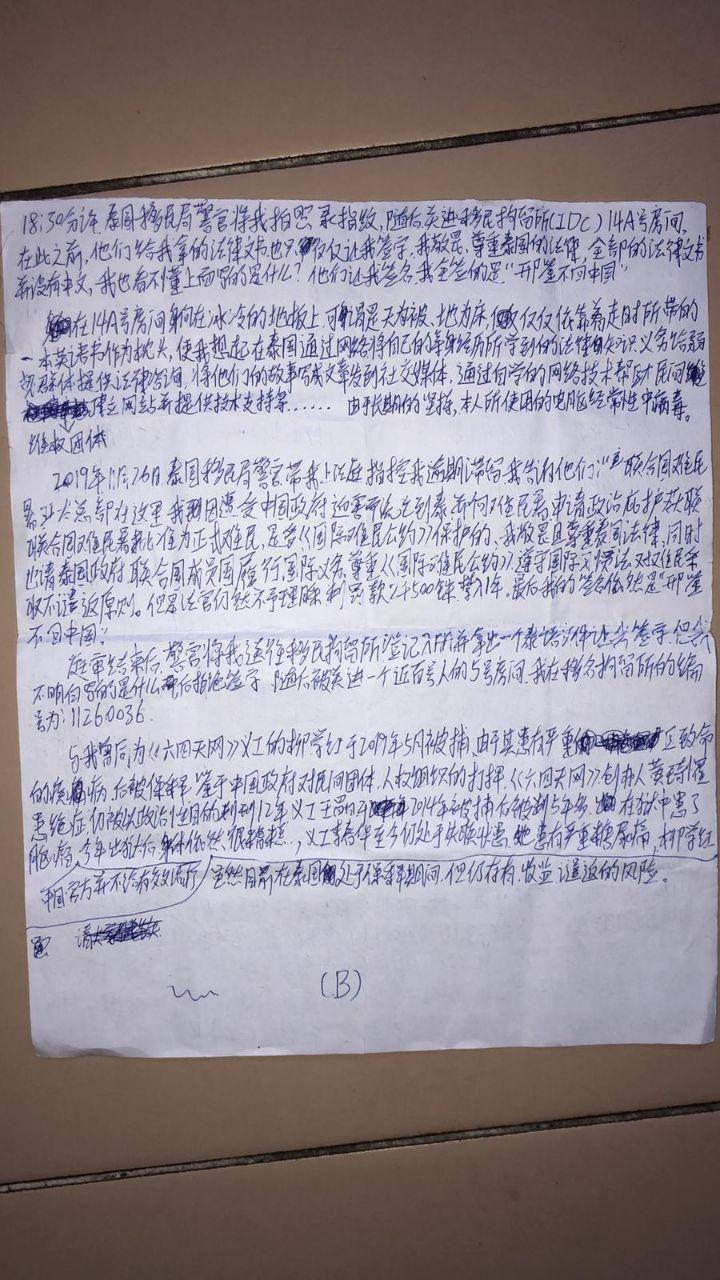 18:30分许泰国移民局警官将我拍照录指纹,随后关进移民拘留所(IDC)14A号房间,
在此之前,他们给我拿的法律文书也只仅仅让我签字,我敬畏、尊重泰国的法律,全部的法律文书
并没有中文,我也看不懂上面写的是什么?他们让我签名,我全签的是"邢鉴不回中国"
在14A号房间躺在冰冷的地板上,可谓是天为被、地为床,仅仅依靠着走时所带的
一本英语书作为枕头,使我想起在泰国通过网络将自己的亲身经历所学到的法律知识义务给弱
势群体提供法律咨询,将他们的故事写成文章发到社交媒体,通过自学的网络技术帮助民间
建立网站并提供技术支持等……由于长期的坚持,本人所使用的电脑经常性中病毒。
维权团体
2019年11月26日泰国移民局警官带我上法庭指控我逾期滞留,我告诉他们:"联合国难民
署亚太总部在这里,我因遭受中国政府迫害而逃到泰国向难民署申请政治庇护,获联
联合国难民署批准为正式难民,是受《国际难民公约》保护的,我敬畏且尊重泰国法律,同时
也请泰国政府联合国成员国履行国际义务,尊重《国际难民公约》遵守国际习惯法对难民采
取不遣返原则。但是法官仍然不予理睬,判罚款 4500铢,禁入1年。最后我的签名依然是"邢鉴
不回中国"
庭审结束后,警官将我送往移民拘留所登记入所并拿出一个泰语文件让我签字,但我
不明白写的是什么后拒绝签字,随后被关进一个近百号人的5号房间,我在移民拘留所的编
号为:11260036.
与我曾同为《六四天网》义工的柳学红于2019年5月被捕,由于其患有严重的 至致命
的疾病,后被保释,鉴于中国政府对民间团体、人权组织的打押,《六四天网》创办人黄琦罹
患绝症仍被以政治性目的判刑12年,义工王晶 2014年被捕后被判5年多,在狱中患了
脑瘤,今年出狱后身体依然很糟糕,义工 至今仍处于失联状态,她患有严重糖尿病,柳学红
中国官方并不给有效治疗 虽然目前在泰国处于保释期间,但仍存有收监遣返的风险。
请
(B)